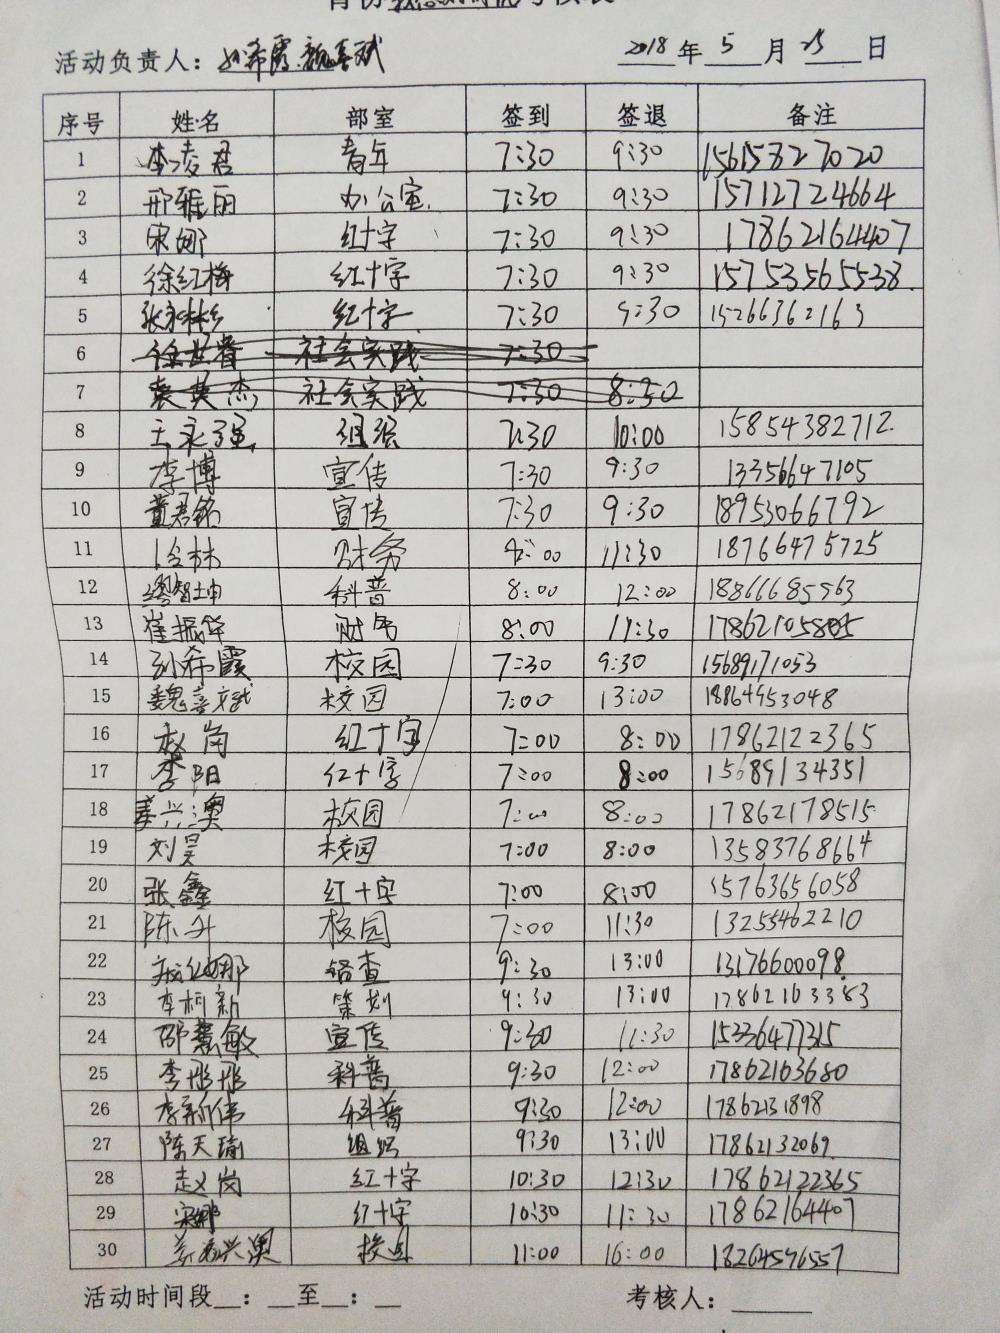 活动负责人：孙希霞.魏喜斌 2018年5月25日
序号 姓名 部室 签到 签退 备注
1 李凌君 青年 7:30 9:30 15615327020
2 邢雅丽 办公室 7:30 9:30 15712724664
3 宋娜 红十字 7:30 9:30 17862164407
4 徐红梅 红十字 7:30 9:30 15753565538
5 红十字 7:30 9:30 15266362163
6 社会实践 7:30
7 袁英杰 社会实践 7:30 8:30
8 王永强 组织 7:30 10:00 15854382712
9 李博 宣传 7:30 9:30 13356647105
10 董君铭 宣传 7:30 9:30 18953066792
11 财务 8:00 11:30 18766475725
12 缪智坤 科普 8:00 12:00 18866685563
13 崔振华 财务 8:00 11:30
14 孙希霞 校园 7:30 9:30 15689171053
15 魏喜斌 校园 7:00 13:00 18864953048
16 赵岗 红十字 7:00 8:00 17862122365
17 李阳 红十字 7:00 8:00 15689134351
18 姜兴澳 校园 7:00 8:00 17862178515
19 刘昊 校园 7:00 8:00 13583768664
20 张鑫 红十字 7:00 8:00 15763656058
21 陈升 校园 7:00 11:30 13255462210
22 9:30 13:00 13176600098
23 李柯新 策划 9:30 13:00 17862163383
24 邵慧敏 宣传 9:30 11:30 15336477315
25 李彤彤 科普 9:30 12:00 17862163680
26 李新伟 科普 9:30 12:00 1786231898
27 陈天瑜 组织 9:30 13:00 1786232069
28 赵岗 红十字 10:30 12:30 17862122365
29 宋娜 红十字 10:30 11:30 17862164407
30 11:00 16:00 18264596557
活动时间段__：__至__：__ 考核人：______